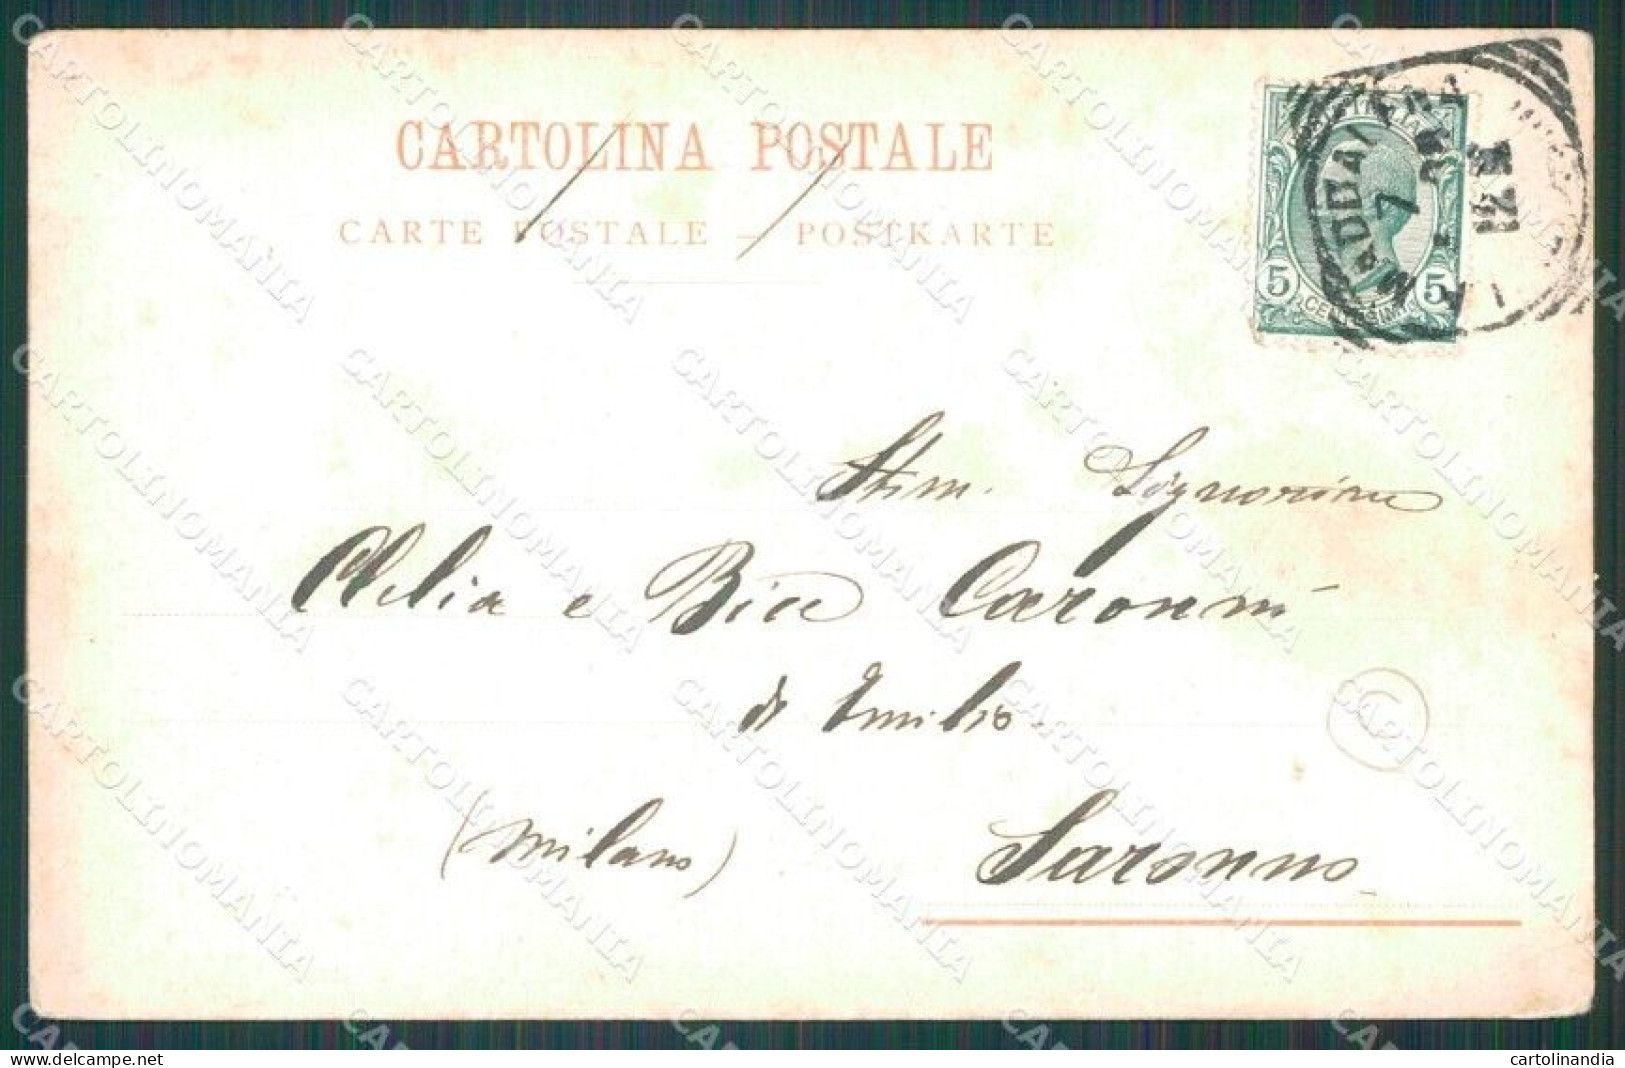 CARTOLINA POSTALE
CARTE POSTALE – POSTKARTE
5 5
CENTESIMI
MADDALENA
7
12
Stim. Signorine
Clelia e Bice Caronni
di Emilio.
(Milano) Saronno
CARTOLINOMANIA
cartolinandia